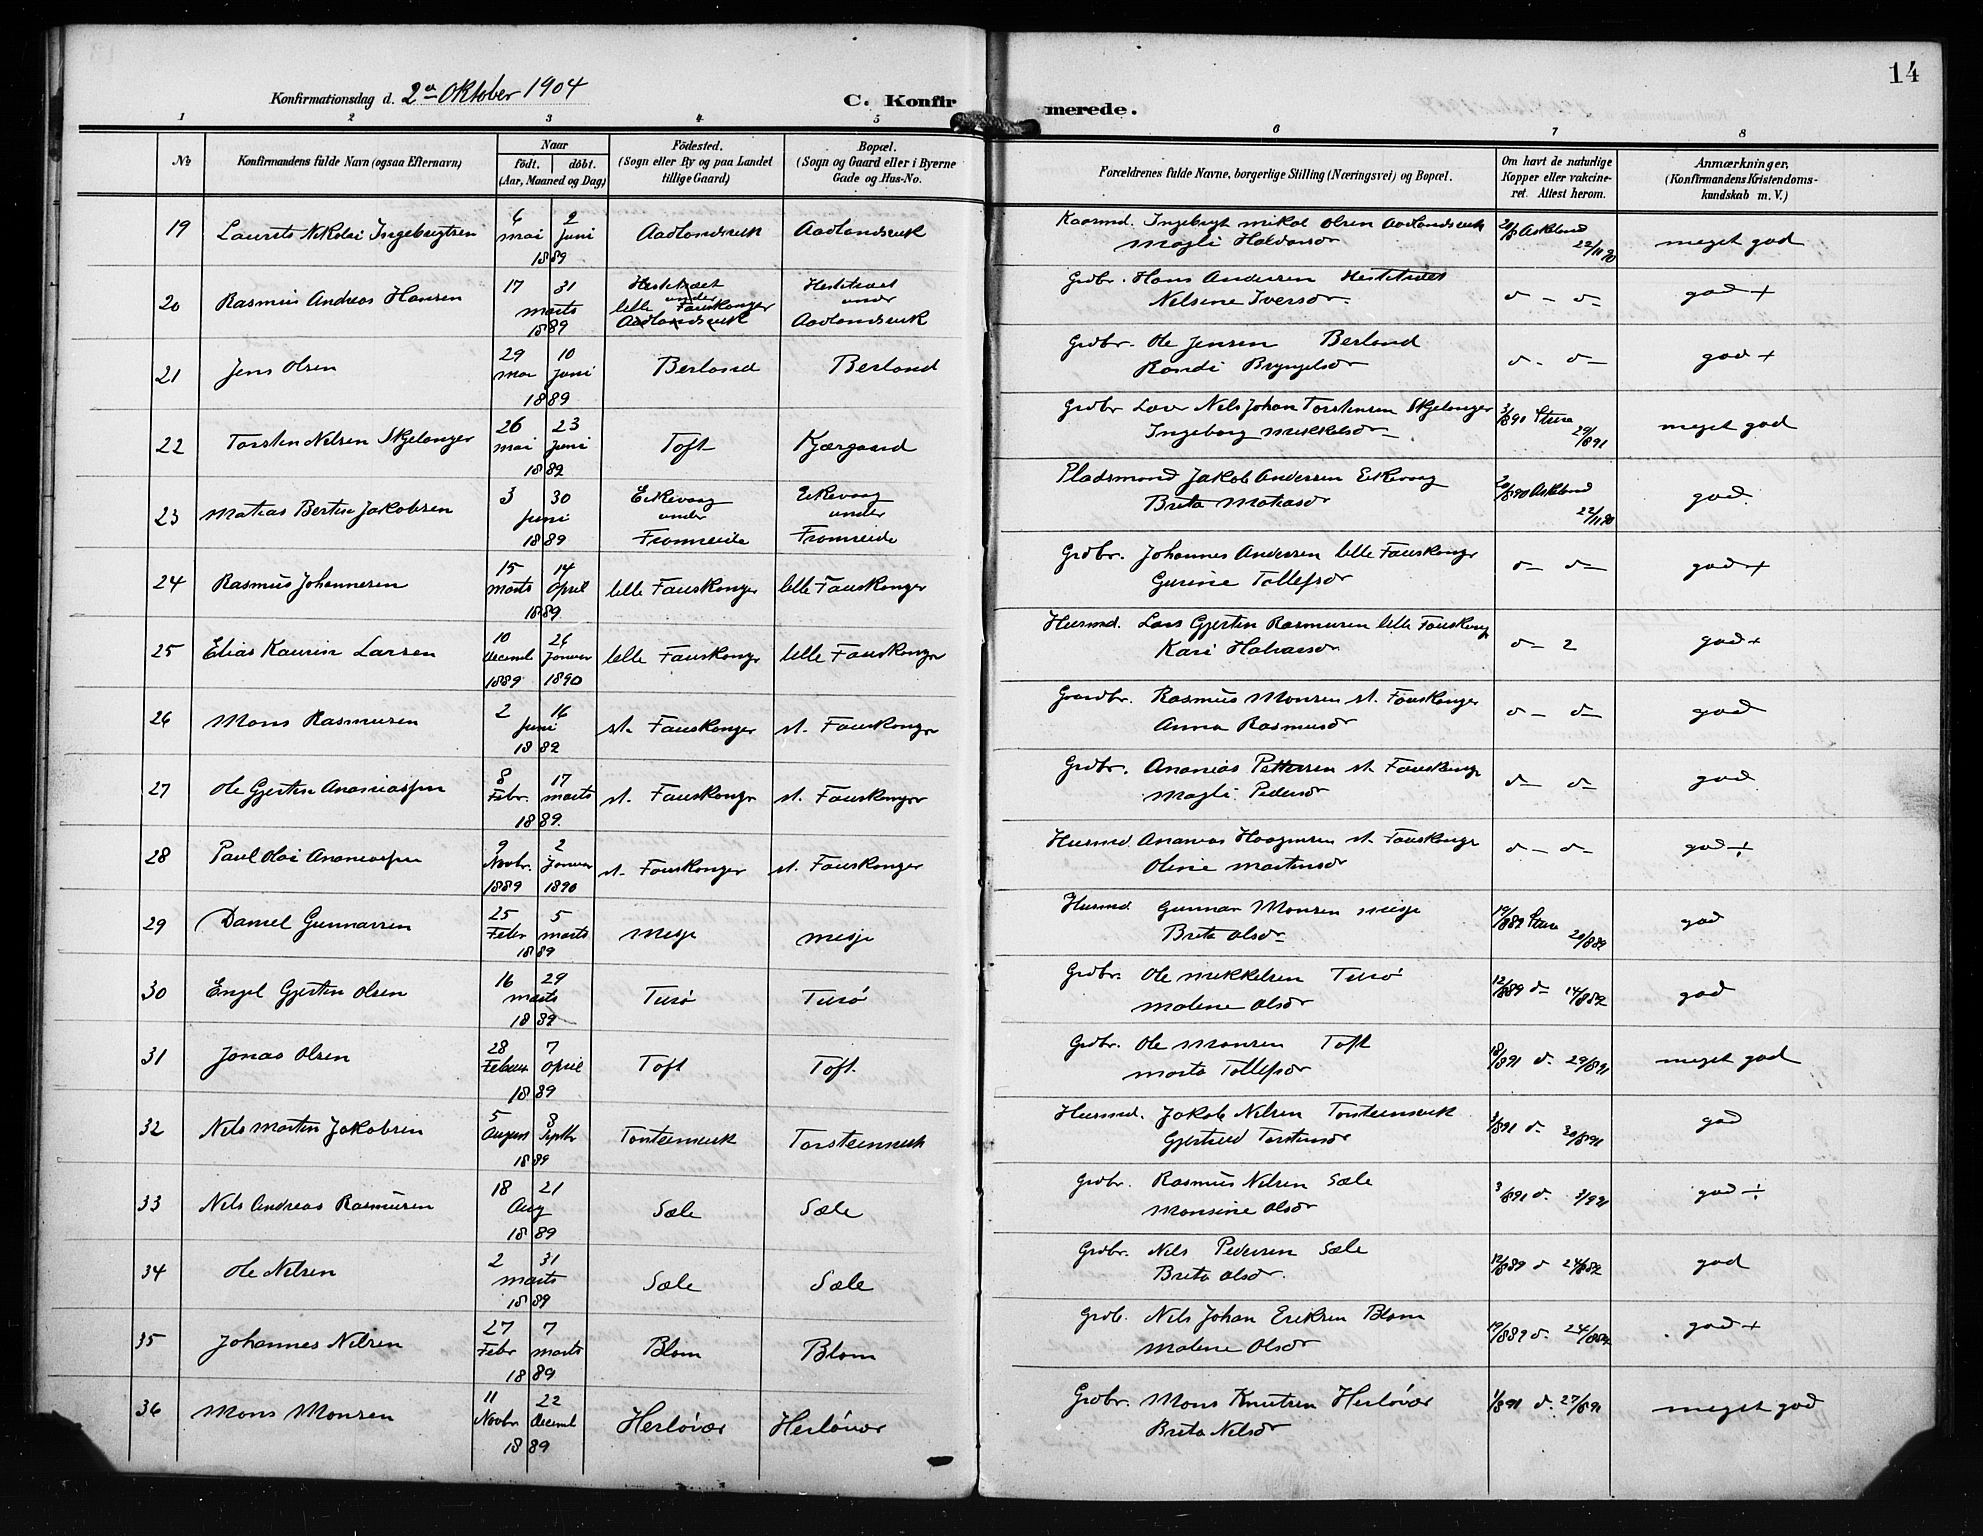 14
Konfirmationsdag d. 2den Oktober 1904
C. Konfirmerede.
1 2 3 4 5 6 7 8
No
Konfirmandens fulde Navn (ogsaa Efternavn)
Naar
födt. döbt.
(Aar, Maaned og Dag)
Födested.
(Sogn eller By og paa Landet
tillige Gaard)
Bopæl.
(Sogn og Gaard eller i Byerne
Gade og Hus-No.
Forældrenes fulde Navne, borgerlige Stilling (Næringsvei) og Bopæl.
Om havt de naturlige
Kopper eller vakcine-
ret. Attest herom.
Anmærkninger,
(Konfirmandens Kristendoms-
kundskab m. V.)
19 Laurits Nikolai Ingebrigtsen 6 mai 2 Juni 1889 Aadlandsvik Aadlandsvik Ingebrigt Mikal Olsen Aadlandsvik
Magli Haldorsdr Askeland 22/11 90 meget god
20 Rasmus Andreas Hansen 17 31 marts 1889 Hestetræet under lille Fauskanger Aadlandsvik Hestetræet under Aadlandsvik Grdbr. Hans Andersen Hestetræet
Nilsine Iversdr. d - d- god +
21 Jens Olsen 29 mai 10 Juni 1889 Berland Berland Grdbr. Ole Jensen Berland
Randi Bryngelsdr d- d- god +
22 Torsten Nilsen Skjelanger 26 mai 23 Juni 1889 Toft Kjærgaard Grdbr Lærer Nils Johan Torstensen Skjelanger
Ingeborg Mikkelsdr 3/8 91 Sture 29/8 91 meget god
23 Matias Bertin Jakobsen 3 30 Juni 1889 Eikevaag under Fromreide Eikevaag under Fromreide Pladsmand Jakob Andersen Eikevaag
Brita Matiasdr 20/8 90 Askeland 22/11 90 god
24 Rasmus Johannesen 15 marts 14 April 1889 lille Fauskanger lille Fauskanger Grdbr. Johannes Andersen lille Fauskanger
Gurine Tollefsdr d- d- god +
25 Elias Kaurin Larsen 10 decemb 1889 26 Januar 1890 lille Fauskanger lille Fauskanger Husmd. Lars Gjertin Rasmussen lille Fauskanger
Kari Halvarsdr d- 2 god +
26 Mons Rasmussen 2 16 Juni 1889 st. Fauskanger st. Fauskanger Gaardbr. Rasmus Monsen st. Fauskanger
Anna Rasmusdr d- d- god
27 Ole Gjertin Ananiassen 8 Febr. 17 marts 1889 st. Fauskanger st. Fauskanger Grdbr. Ananias Pettersen st. Fauskanger
Magli Pedersdr d- d- god
28 Paul Olai Ananiassen 9 Novbr. 1889 2 Januar 1890 st. Fauskanger st. Fauskanger Husmd Ananias Haagensen st. Fauskanger
Oline Martinsdr d- d- god ÷
29 Daniel Gunnarsen 25 Febr 5 marts 1889 Misje Misje Husmd. Gunnar Monsen Misje
Brita Olsdr 19/8 89 Sture 20/8 89 god
30 Engel Gjertin Olsen 16 29 marts 1889 Turø Turø Grdbr. Ole Mikkelsen Turø
Malene Olsdr 12/8 89 d- 14/8 89 god
31 Jonas Olsen 28 Februar 7 April 1889 Toft Toft Grdbr. Ole Monsen Toft
Marta Tollefsdr 18/8 91 d. 29/8 91 meget god
32 Nils Martin Jakobsen 5 August 8 Septbr 1889 Torsteinsvik Torsteinsvik Husmd. Jakob Nilsen Torsteinsvik
Gjertrud Torstensdr 3/8 91 d- 30/8 91 god
33 Nils Andreas Rasmussen 18 21 Aug 1889 Sæle Sæle Grdbr. Rasmus Nilsen Sæle
Monsine Olsdr 3/8 91 d. 3/9 91 god ÷
34 Ole Nilsen 2 31 marts 1889 Sæle Sæle Grdbr. Nils Pedersen Sæle
Brita Olsdr. 12/8 89 d 24/8 89 god
35 Johannes Nilsen 27 Febr 7 marts 1889 Blom Blom Grdb. Nils Johan Eriksen Blom
Malene Olsdr 19/8 89 d. 24/8 89 god +
36 Mons Monsen 11 Novbr 22 decemb 1889 Herløvær Herløvær Grdbr. Mons Knutsen Herløvær
Brita Nilsdr 1/8 91 d. 27/8 91 meget god